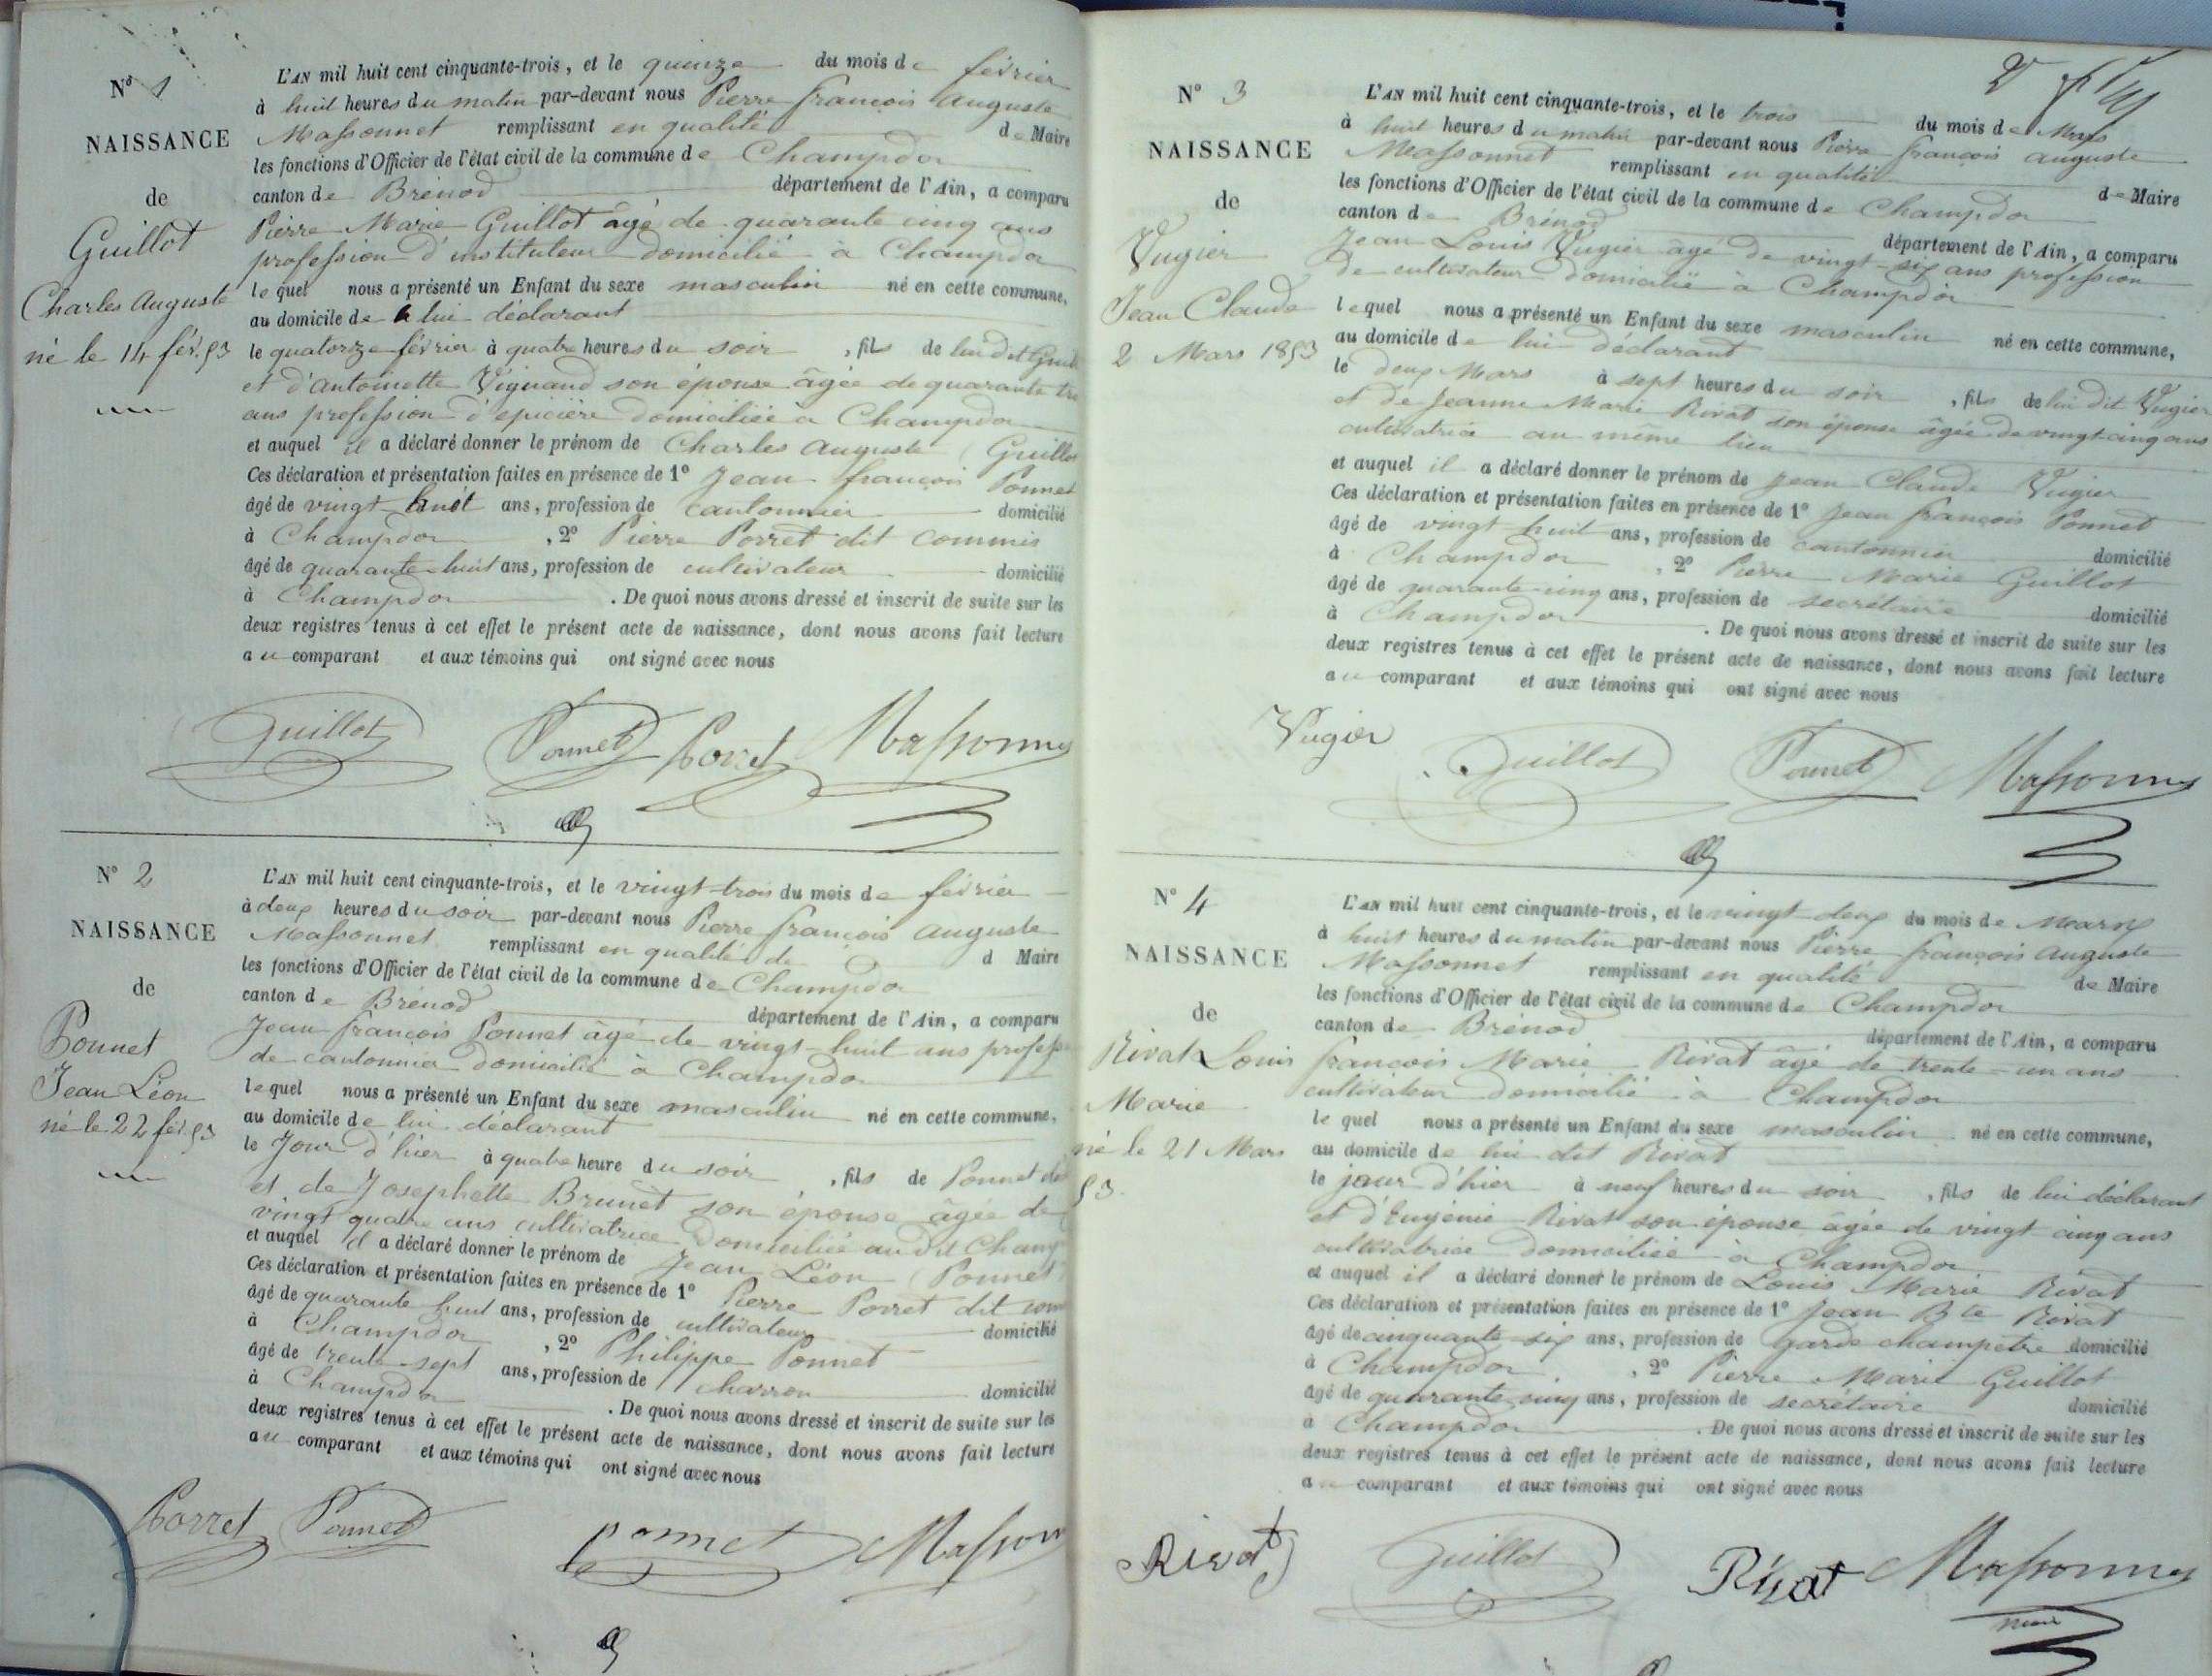 N° 1
NAISSANCE
de
Guillot
Charles Auguste
né le 14 fév. 53
L'AN mil huit cent cinquante-trois, et le quinze du mois de février
à huit heures du matin par-devant nous Pierre françois auguste
Massonnet remplissant en qualité de Maire
les fonctions d'Officier de l'état civil de la commune de Champdor
canton de Brénod département de l'Ain, a comparu
Pierre Marie Guillot âgé de quarante cinq ans
profession d'instituteur domicilié à Champdor
lequel nous a présenté un Enfant du sexe masculin né en cette commune,
au domicile de lui déclarant
le quatorze février à quatre heures du soir, fils de lui dit
et d'antoinette Vignand son épouse âgée de quarante
ans profession d'epicière domiciliée à Champdor
et auquel il a déclaré donner le prénom de Charles auguste Guillot
Ces déclaration et présentation faites en présence de 1° Jean françois Ponnet
âgé de vingt-huit ans, profession de cantonnier domicilié
à Champdor, 2° Pierre Porret dit commis
âgé de quarante-huit ans, profession de cultivateur domicilié
à Champdor. De quoi nous avons dressé et inscrit de suite sur les
deux registres tenus à cet effet le présent acte de naissance, dont nous avons fait lecture
au comparant et aux témoins qui ont signé avec nous
Guillot Ponnet Porret Massonnet
N° 2
NAISSANCE
de
Ponnet
Jean Léon
né le 22 fév. 53
L'AN mil huit cent cinquante-trois, et le vingt-trois du mois de février
à deux heures du soir par-devant nous Pierre françois auguste
Massonnet remplissant en qualité de d Maire
les fonctions d'Officier de l'état civil de la commune de Champdor
canton de Brénod département de l'Ain, a comparu
Jean françois Ponnet âgé de vingt-huit ans profess
de cantonnier domicilié à Champdor
lequel nous a présenté un Enfant du sexe masculin né en cette commune,
au domicile de lui déclarant
le Jour d'hier à quatre heure du soir, fils de Ponnet
et de Josephette Brunet son épouse âgée de
vingt quatre ans cultivatrice domiciliée au dit Champ
et auquel il a déclaré donner le prénom de Jean Léon Ponnet
Ces déclaration et présentation faites en présence de 1° Pierre Porret dit com
âgé de quarante huit ans, profession de cultivateur domicilié
à Champdor, 2° Philippe Ponnet
âgé de trente-sept ans, profession de charron domicilié
à Champdor. De quoi nous avons dressé et inscrit de suite sur les
deux registres tenus à cet effet le présent acte de naissance, dont nous avons fait lecture
au comparant et aux témoins qui ont signé avec nous
Porret Ponnet ponnet Masson
2
N° 3
NAISSANCE
de
Vugier
Jean Claude
2 Mars 1853
L'AN mil huit cent cinquante-trois, et le trois du mois de Mars
à huit heures du matin par-devant nous Pierre françois auguste
Massonnet remplissant en qualité de Maire
les fonctions d'Officier de l'état civil de la commune de Champdor
canton de Brénod département de l'Ain, a comparu
Jean Louis Vugier âgé de vingt-six ans profession
de cultivateur domicilié à Champdor
lequel nous a présenté un Enfant du sexe masculin né en cette commune,
au domicile de lui déclarant
le deux Mars à sept heures du soir, fils de lui dit Vugier
et de Jeanne Marie Rivat son épouse âgée de vingt cinq ans
cultivatrice au même lieu
et auquel il a déclaré donner le prénom de Jean Claude Vugier
Ces déclaration et présentation faites en présence de 1° Jean françois Ponnet
âgé de vingt-huit ans, profession de cantonnier domicilié
à Champdor, 2° Pierre Marie Guillot
âgé de quarante-cinq ans, profession de secrétaire domicilié
à Champdor. De quoi nous avons dressé et inscrit de suite sur les
deux registres tenus à cet effet le présent acte de naissance, dont nous avons fait lecture
au comparant et aux témoins qui ont signé avec nous
Vugier Guillot Ponnet Massonnet
N° 4
NAISSANCE
de
Rivat Louis
Marie
né le 21 Mars
53.
L'AN mil huit cent cinquante-trois, et le vingt-deux du mois de Mars
à huit heures du matin par-devant nous Pierre françois auguste
Massonnet remplissant en qualité de Maire
les fonctions d'Officier de l'état civil de la commune de Champdor
canton de Brénod département de l'Ain, a comparu
françois Marie Rivat âgé de trente-un ans
cultivateur domicilié à Champdor
lequel nous a présenté un Enfant du sexe masculin né en cette commune,
au domicile de lui dit Rivat
le jour d'hier à neuf heures du soir, fils de lui déclarant
et d'Eugénie Rivat son épouse âgée de vingt-cinq ans
cultivatrice domiciliée à Champdor
et auquel il a déclaré donner le prénom de Louis Marie Rivat
Ces déclaration et présentation faites en présence de 1° Jean Bte Rivat
âgé de cinquante-six ans, profession de garde champêtre domicilié
à Champdor. , 2° Pierre Marie Guillot
âgé de quarante cinq ans, profession de secrétaire domicilié
à Champdor. De quoi nous avons dressé et inscrit de suite sur les
deux registres tenus à cet effet le présent acte de naissance, dont nous avons fait lecture
au comparant et aux témoins qui ont signé avec nous
Rivat Guillot Rivat Massonnet